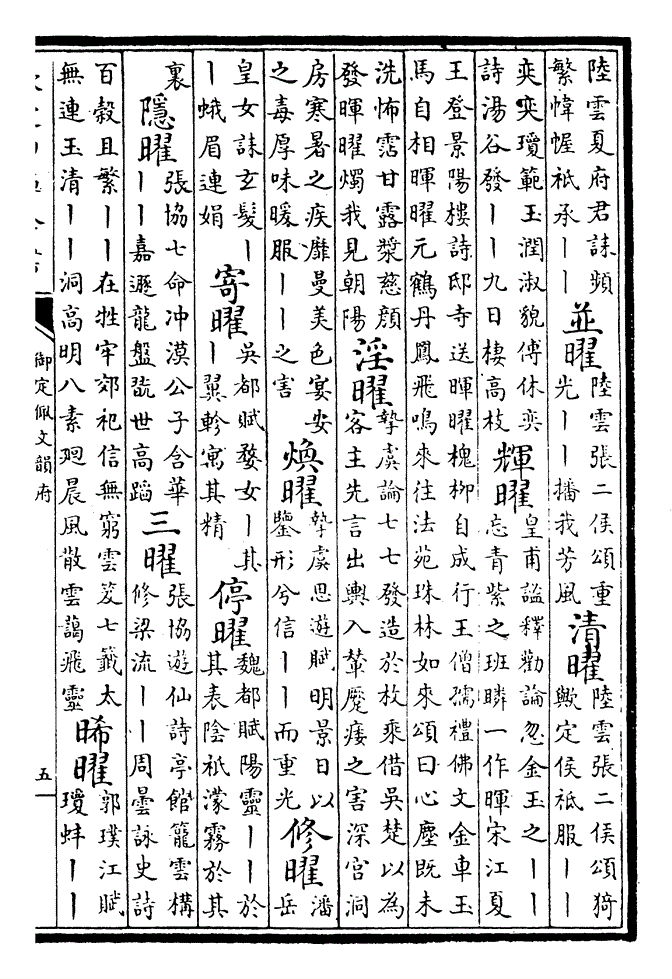 陸雲夏府君誄頻
繁幃幄祇承｜｜
並曜
陸雲張二侯頌重
光｜｜播我芳風
清曜
陸雲張二侯頌猗
歟定侯祇服｜｜
奕奕瓊範玉潤淑貌傅休奕
詩湯谷發｜｜九日棲高枝
輝曜
皇甫謐釋勸論忽金玉之｜｜
忘青紫之班瞵一作暉宋江夏
王登景陽樓詩邸寺送暉曜槐柳自成行王僧孺禮佛文金車玉
馬自相暉曜元鶴丹鳳飛鳴來往法苑珠林如來頌曰心塵既未
洗怖霑甘露漿慈顔
發暉曜燭我見朝陽
淫曜
摯虞論七七發造於枚乘借吳楚以為
客主先言出輿入輦蹷痿之害深宫洞
房寒暑之疾靡曼美色宴安
之毒厚味暖服｜｜之害
煥曜
摯虞思遊賦明景日以
鑒形兮信｜｜而重光
修曜
潘
岳
皇女誄玄髮｜
｜蛾眉連娟
寄曜
吳都賦婺女｜其
｜翼軫寓其精
停曜
魏都賦陽靈｜｜於
其表陰祇濛霧於其
裏
隱曜
張協七命冲漠公子含華
｜｜嘉遯龍盤翫世高蹈
三曜
張協遊仙詩亭館籠雲構
修梁流｜｜周曇詠史詩
百榖且繁｜｜在牲牢郊祀信無窮雲笈七籤太
無連玉清｜｜洞高明八素廻晨風散雲藹飛靈
晞曜
郭璞江賦
瓊蚌｜｜
御定佩文韻府
五